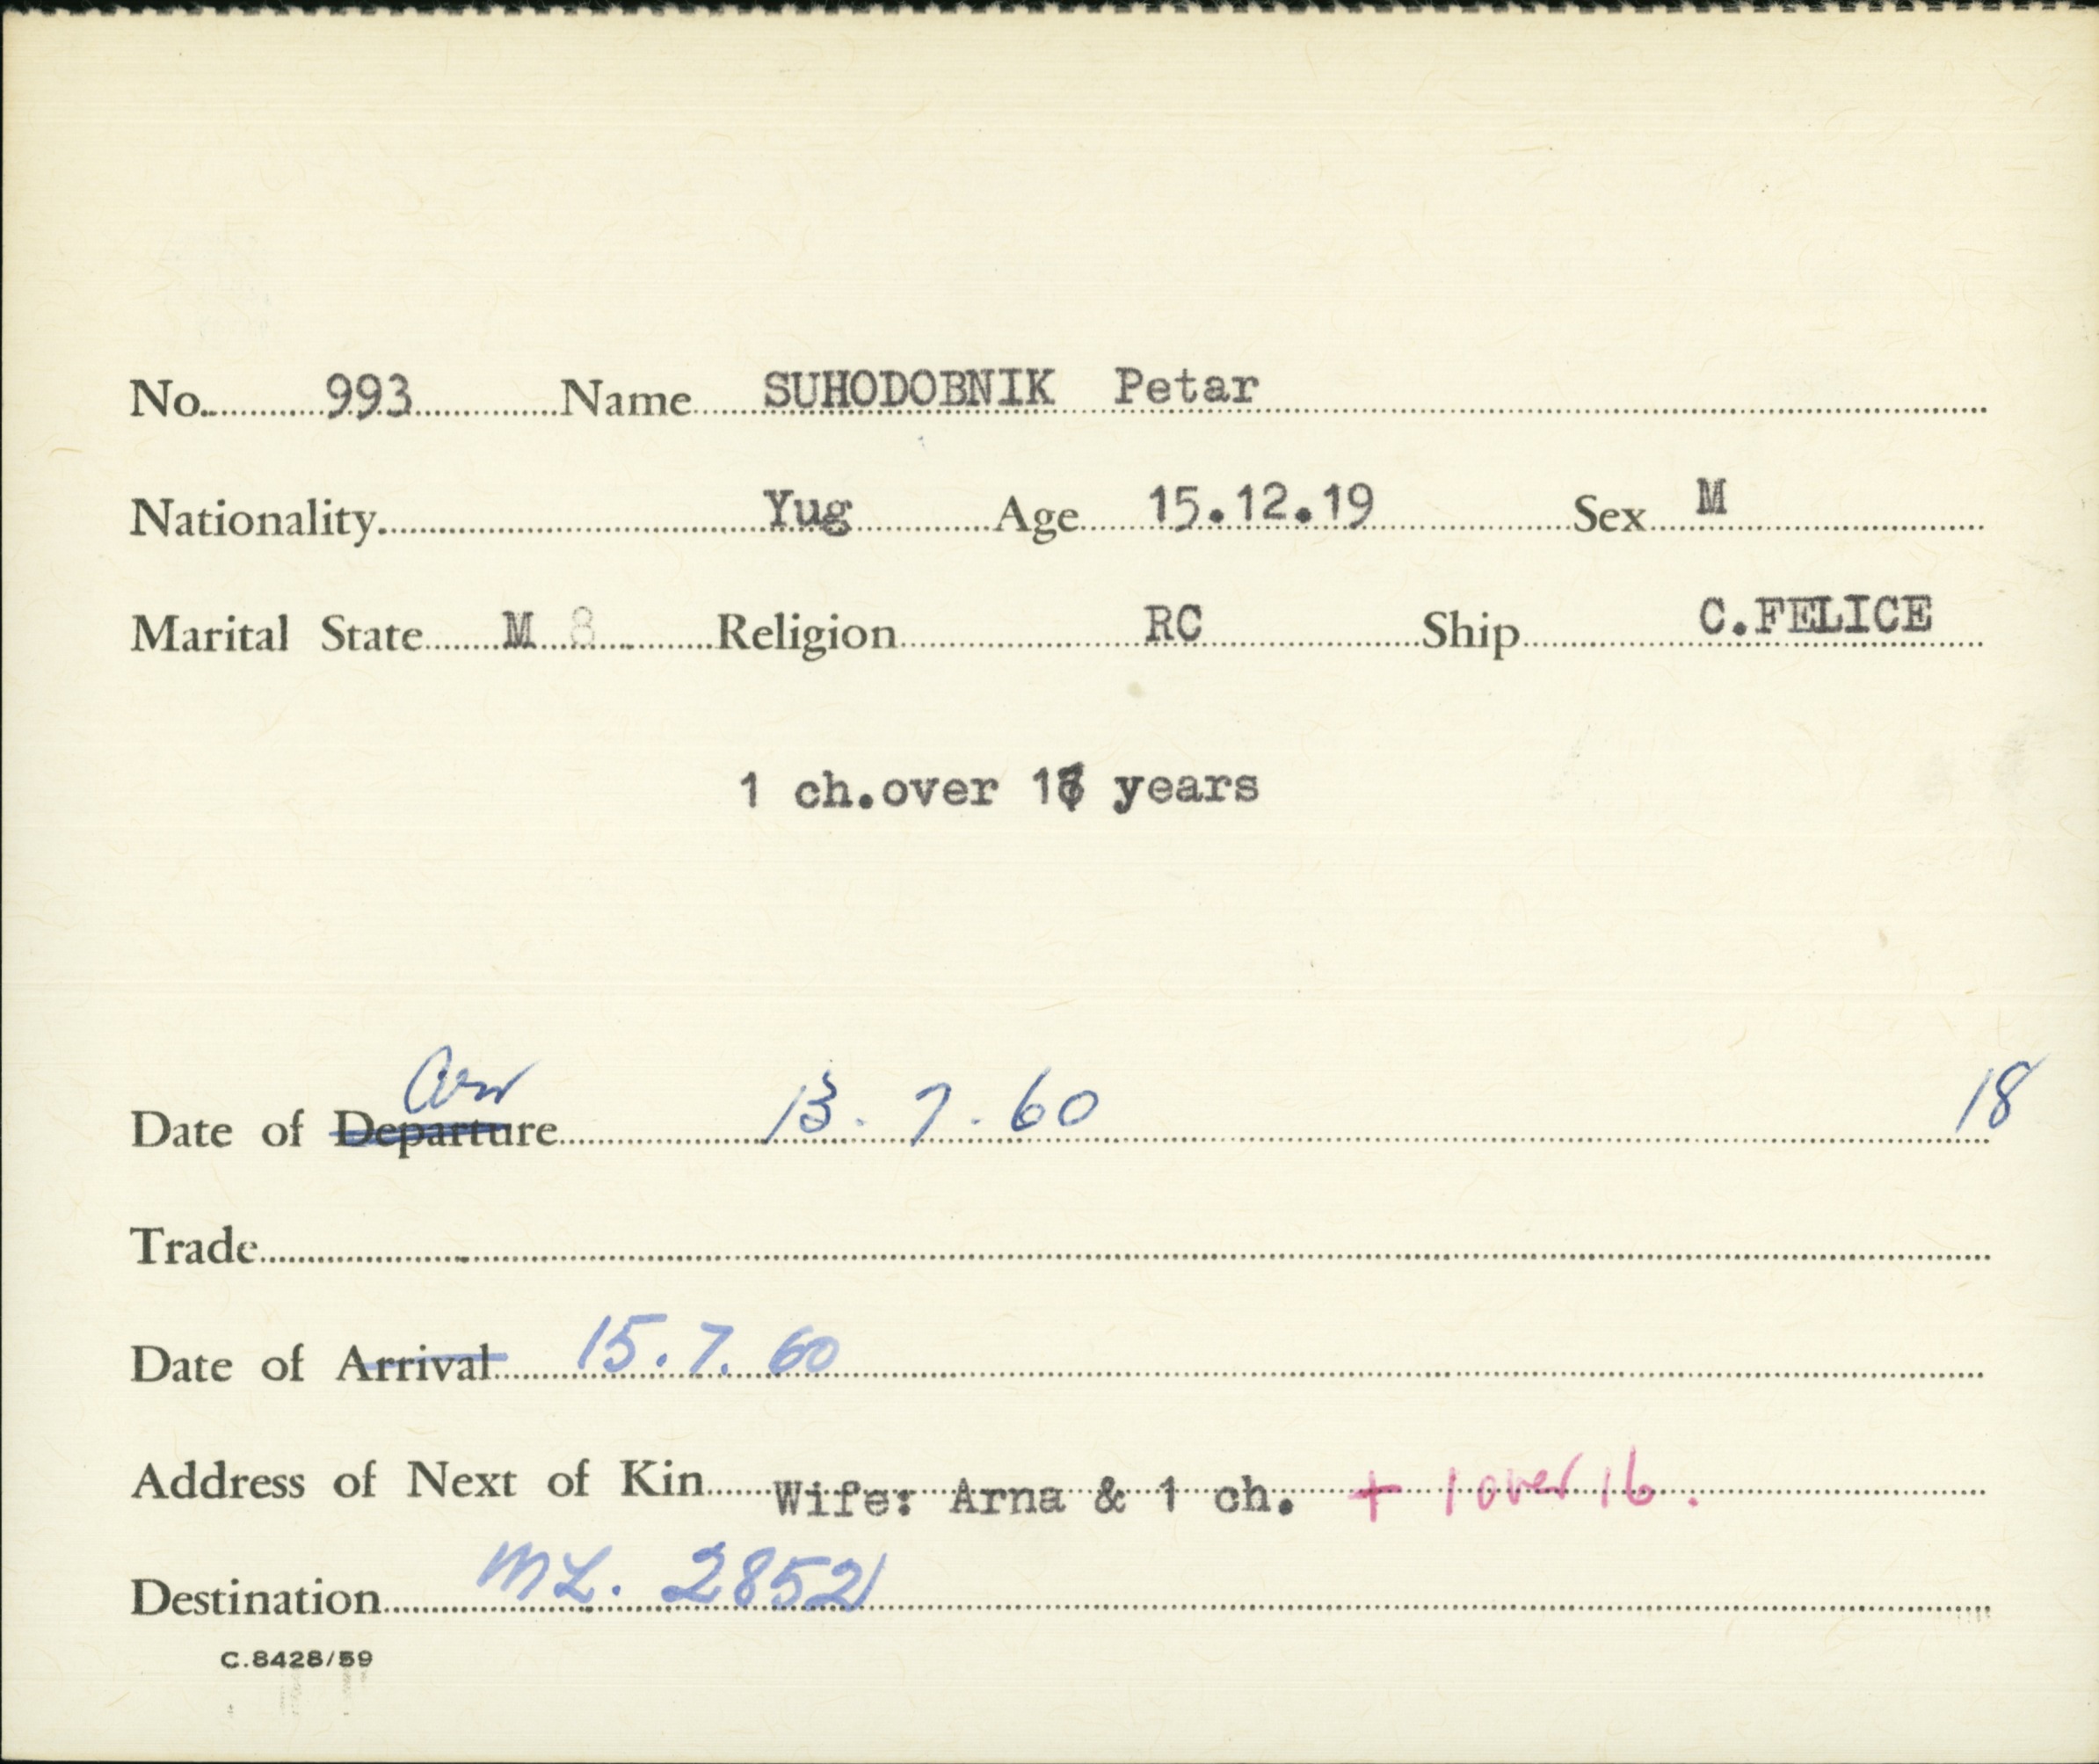 No. 993 Name SUHODOBNIK Petar
Nationality Yug Age 15.12.19 Sex M
Marital State M 8 Religion RC Ship C.FELICE
1 ch.over 16 years
Arr
Date of Departure 13.7.60 18
Trade
Date of Arrival 15.7.60
Address of Next of Kin Wife: Arna & 1 ch. + 1 over 16.
Destination ML. 2852
C.8428/59